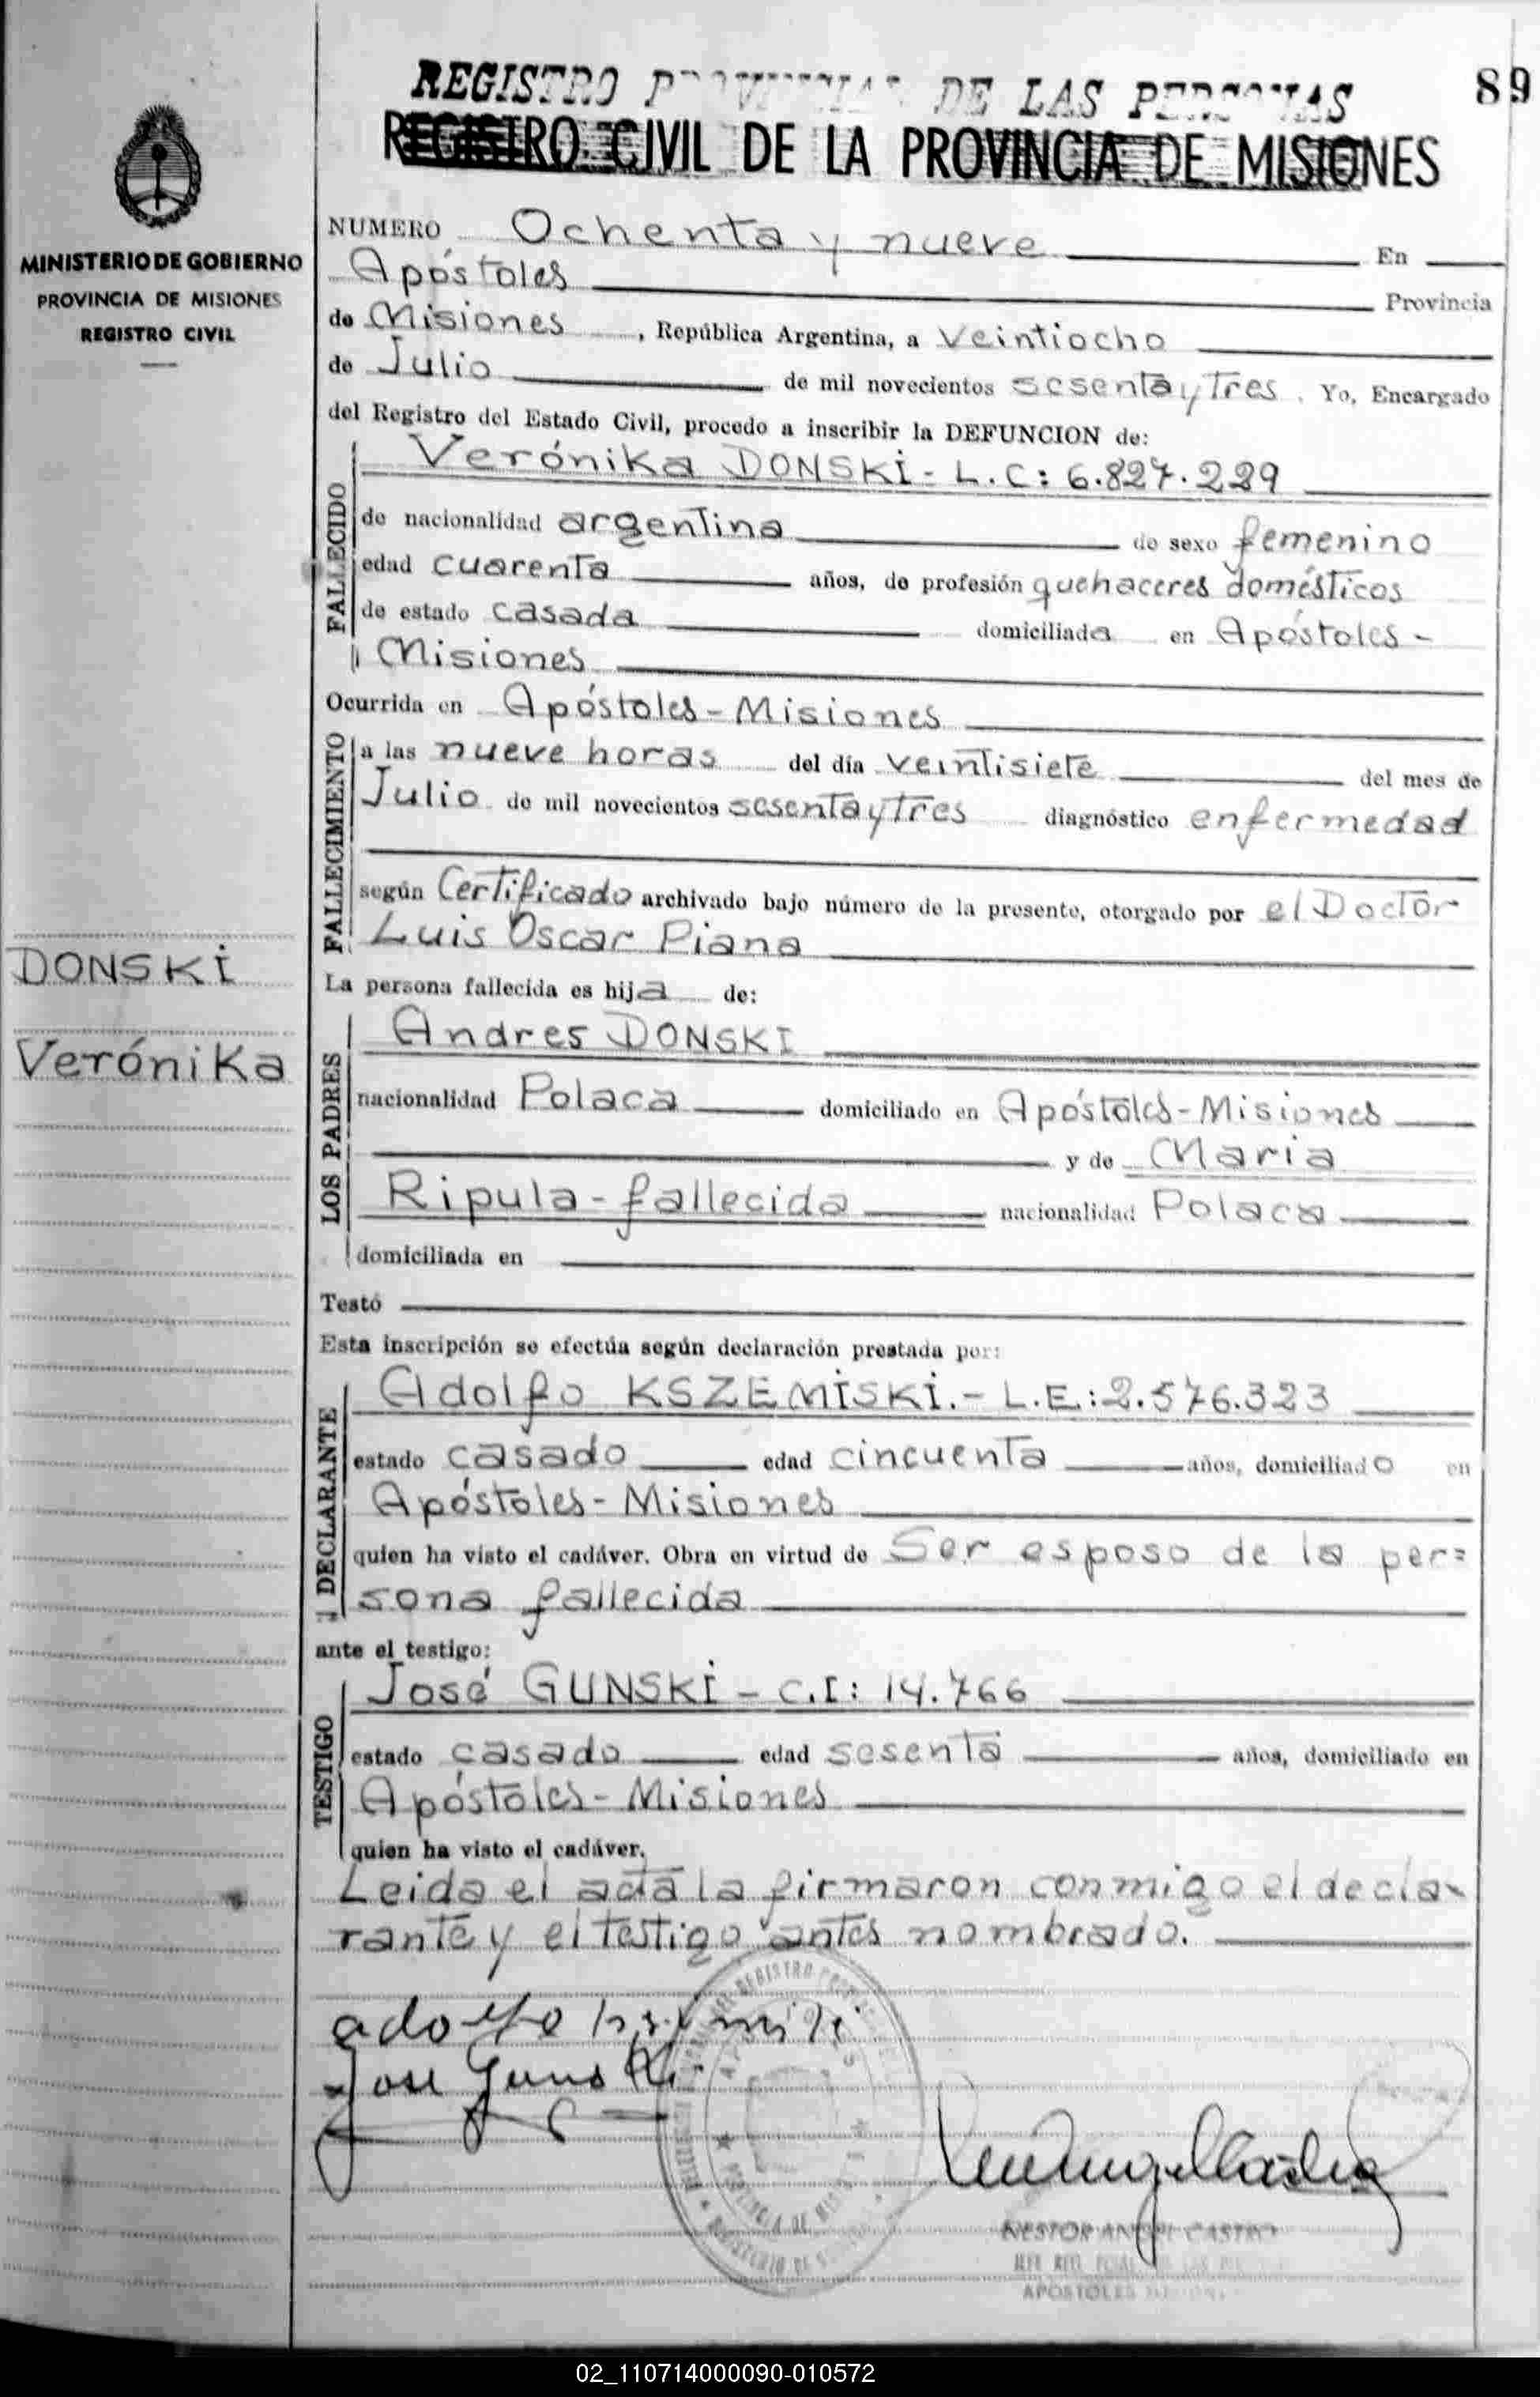 REGISTRO PROVINCIAL DE LAS PERSONAS
89
REGISTRO CIVIL DE LA PROVINCIA DE MISIONES
MINISTERIO DE GOBIERNO
PROVINCIA DE MISIONES
REGISTRO CIVIL
NUMERO Ochenta y nueve En
Apóstoles Provincia
de Misiones, República Argentina, a veintiocho
de Julio de mil novecientos sesenta y tres. Yo, Encargado
del Registro del Estado Civil, procedo a inscribir la DEFUNCION de:
FALLECIDO
Verónika DONSKI - L.C: 6.827.229
de nacionalidad argentina de sexo femenino
edad cuarenta años, de profesión quehaceres domésticos
de estado casada domiciliada en Apóstoles -
Misiones
Ocurrida en Apóstoles - Misiones
FALLECIMIENTO
a las nueve horas del día veintisiete del mes de
Julio de mil novecientos sesenta y tres diagnóstico enfermedad
según Certificado archivado bajo número de la presente, otorgado por el Doctor
Luis Oscar Piana
DONSKI
Verónika
La persona fallecida es hija de:
LOS PADRES
Andres DONSKI
nacionalidad Polaca domiciliado en Apóstoles - Misiones
y de Maria
Ripula - fallecida nacionalidad Polaca
domiciliada en
Testó
Esta inscripción se efectúa según declaración prestada por:
DECLARANTE
Adolfo KSZEMISKI. - L.E.: 2.576.323
estado casado edad cincuenta años, domiciliado en
Apóstoles - Misiones
quien ha visto el cadáver. Obra en virtud de Ser esposo de la per=
sona fallecida
ante el testigo:
TESTIGO
José GUNSKI - C.I: 14.766
estado casado edad sesenta años, domiciliado en
Apóstoles - Misiones
quien ha visto el cadáver.
Leida el acta la firmaron conmigo el decla-
rante y el testigo antes nombrado.
adolfo
Jose Gunski
NESTOR ANGEL CASTRO
APOSTOLES
02_110714000090-010572